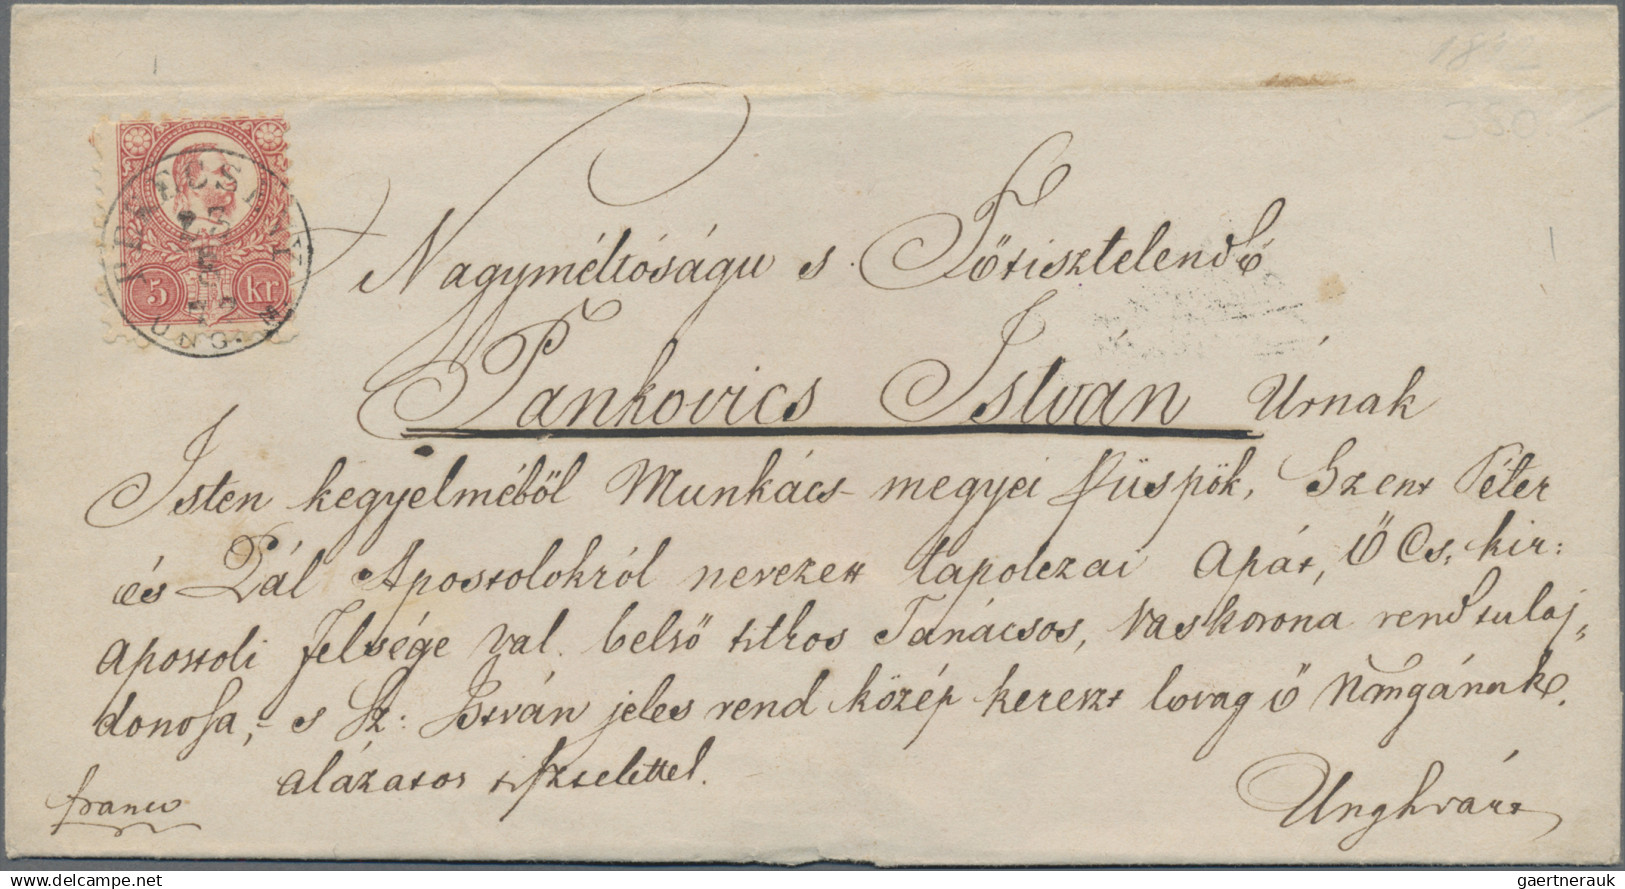 5 kr
UNG. M.
Nagyméltóságu s. Főtisztelendő
Pankovics István Úrnak
Isten kegyelméből Munkács-megyei püspök, Szent Péter
és Pál Apostolokról nevezett tapolczai apát, Ő Cs. kir:
apostoli Felsége val. belső titkos Tanácsos, Vaskorona rend tulaj„
donosa, – s Sz: István jeles rend közép kereszt lovag Ő Nagyságának
alázatos tisztelettel.
franco
Unghvárt
delcampe.net
gaertnerauk